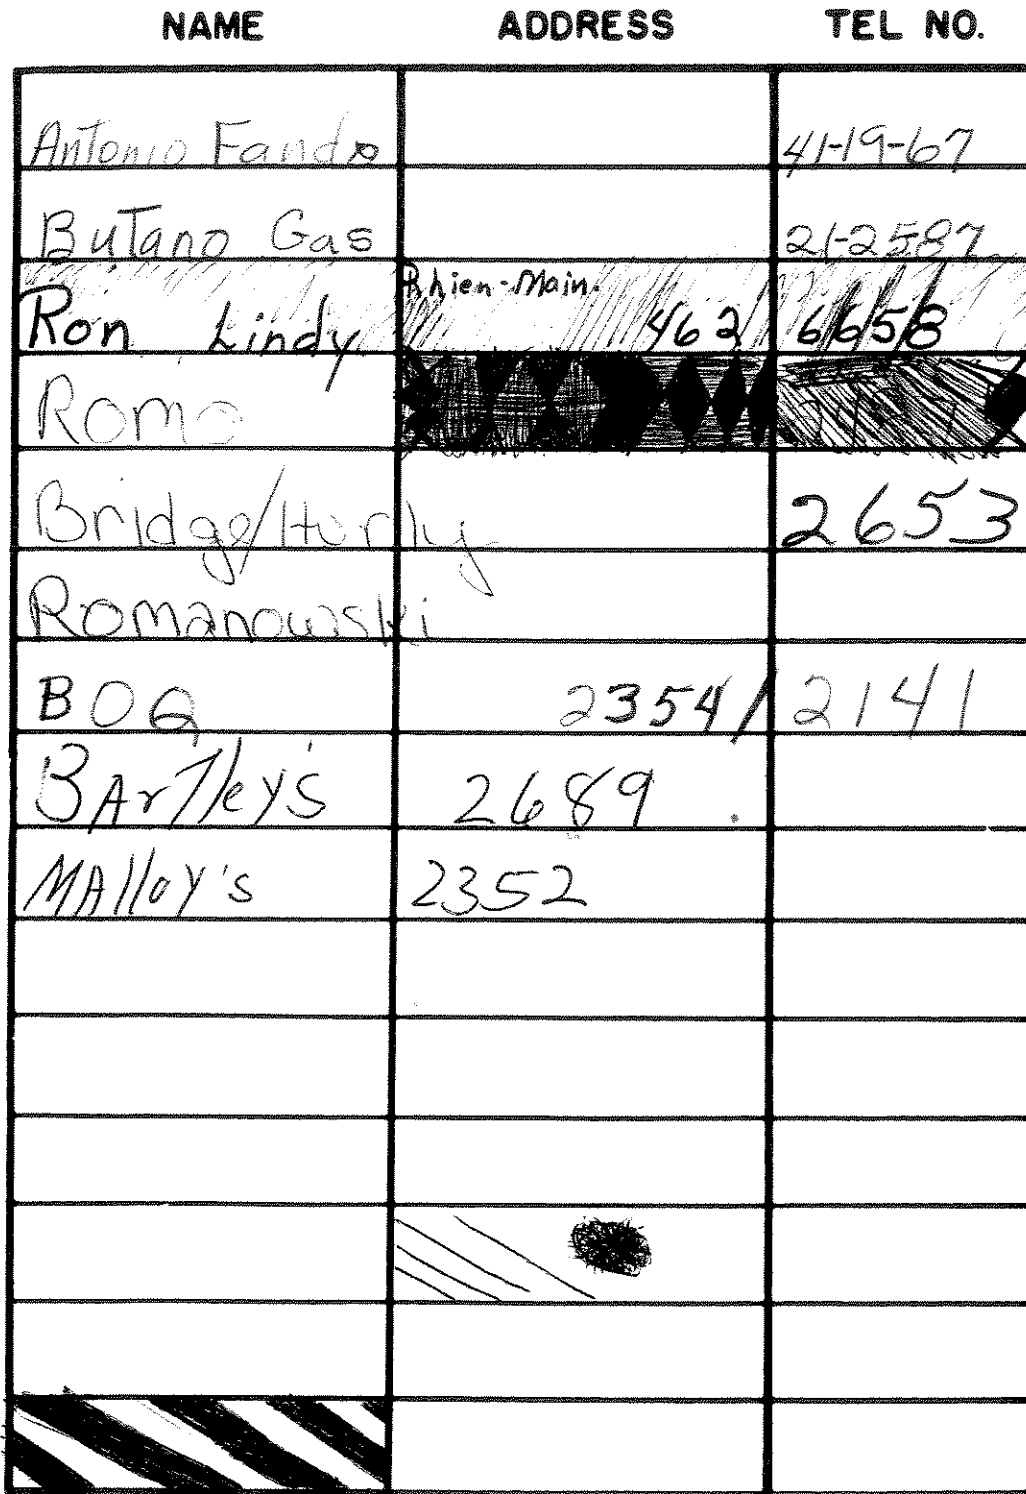 NAME ADDRESS TEL NO.
Antonio Fando 41-19-67
Butano Gas 21-2587
Rhien-Main.
Ron Lindy 462/6658
Romo
Bridge/Hurly 2653
Romanowski
BOQ 2354/2141
BArTley's 2689
MAlloy's 2352